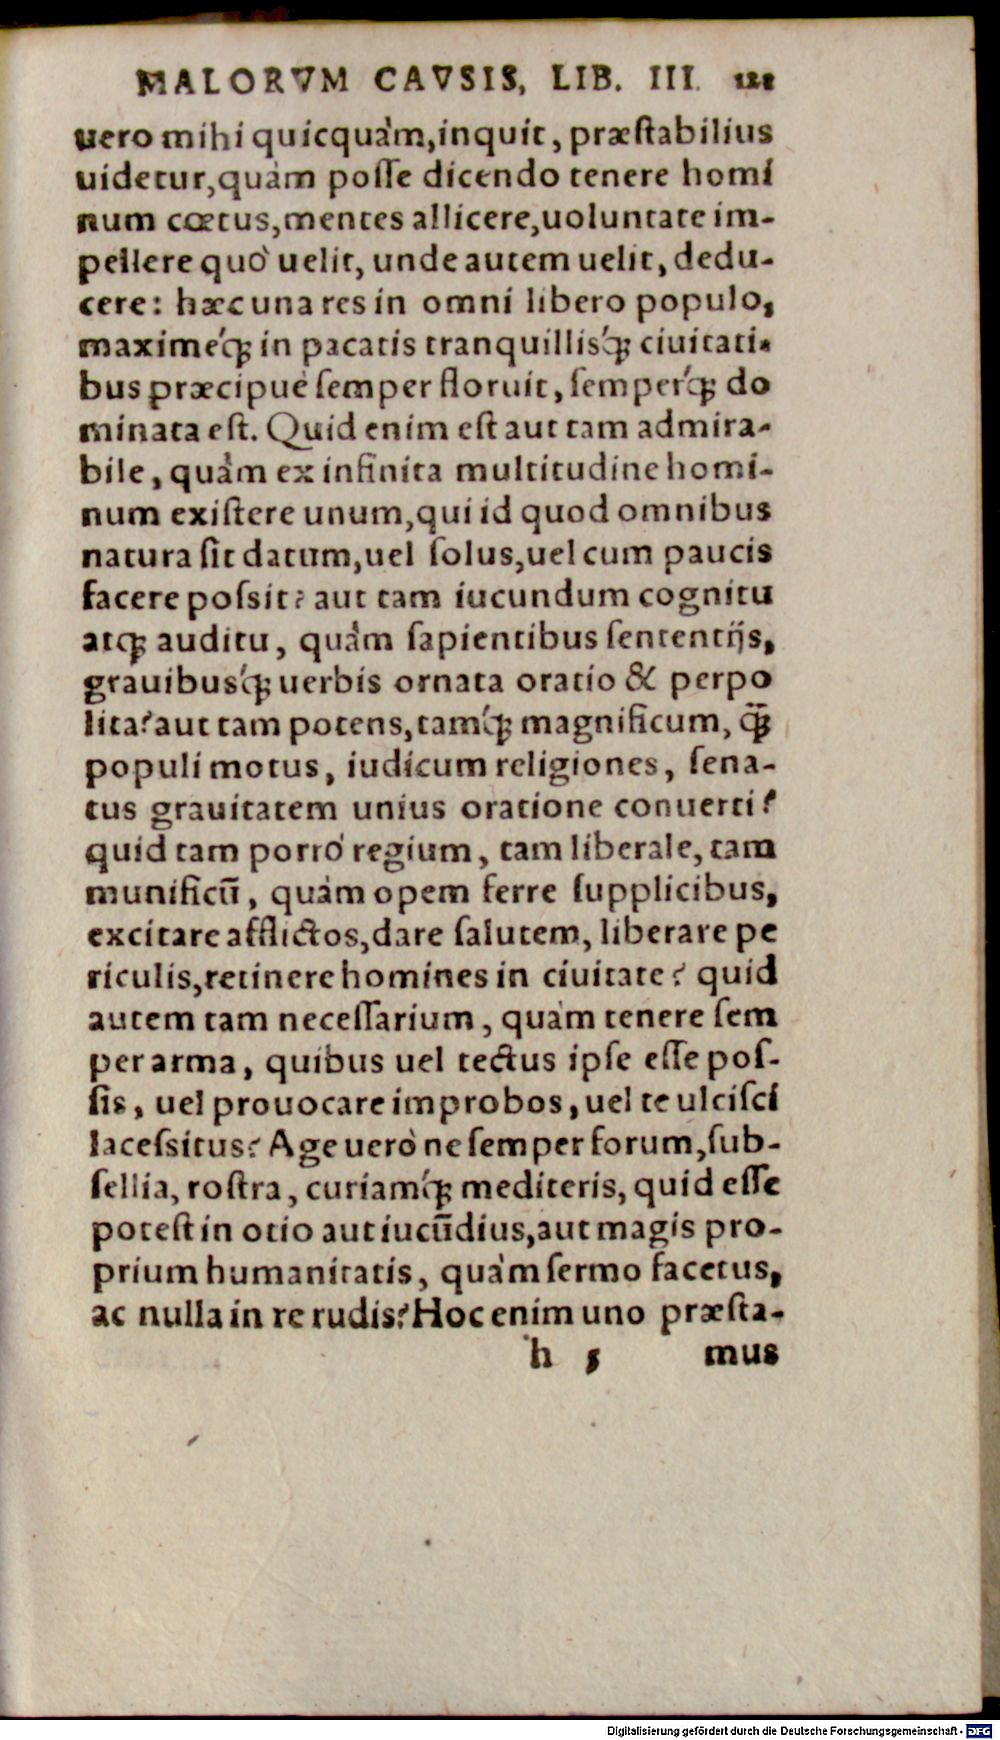 MALORVM CAVSIS, LIB. III. 121
uero mihi quicquàm,inquit, præſtabilius
uidetur,quàm poſſe dicendo tenere homi
num cœtus,mentes allicere,uoluntate im-
pellere quò uelit, unde autem uelit, dedu-
cere: hæc una res in omni libero populo,
maximéq́ꝫ in pacatis tranquilliſq́ꝫ ciuitati-
bus præcipuè ſemper floruit, ſemperq́ꝫ do
minata eſt. Quid enim eſt aut tam admira-
bile, quàm ex infinita multitudine homi-
num exiſtere unum,qui id quod omnibus
natura ſit datum,uel ſolus,uel cum paucis
facere poſsit? aut tam iucundum cognitu
atqꝫ auditu, quàm ſapientibus ſententijs,
grauibusq́ꝫ uerbis ornata oratio & perpo
lita? aut tam potens,tamq́ꝫ magnificum, q̃ꝫ
populi motus, iudicum religiones, ſena-
tus grauitatem unius oratione conuerti?
quid tam porrò regium, tam liberale, tam
munificũ, quàm opem ferre ſupplicibus,
excitare afflictos,dare ſalutem, liberare pe
riculis,retinere homines in ciuitate? quid
autem tam neceſſarium, quàm tenere ſem
per arma, quibus uel tectus ipſe eſſe poſ-
ſis, uel prouocare improbos, uel te ulciſci
laceſsitus? Age uerò ne ſemper forum,ſub-
ſellia, roſtra, curiamq́ꝫ mediteris, quid eſſe
poteſt in otio aut iucũdius,aut magis pro-
prium humanitatis, quàm ſermo facetus,
ac nulla in re rudis? Hoc enim uno præſta-
h 5 mus
Digitalisierung gefördert durch die Deutsche Forschungsgemeinschaft - DFG